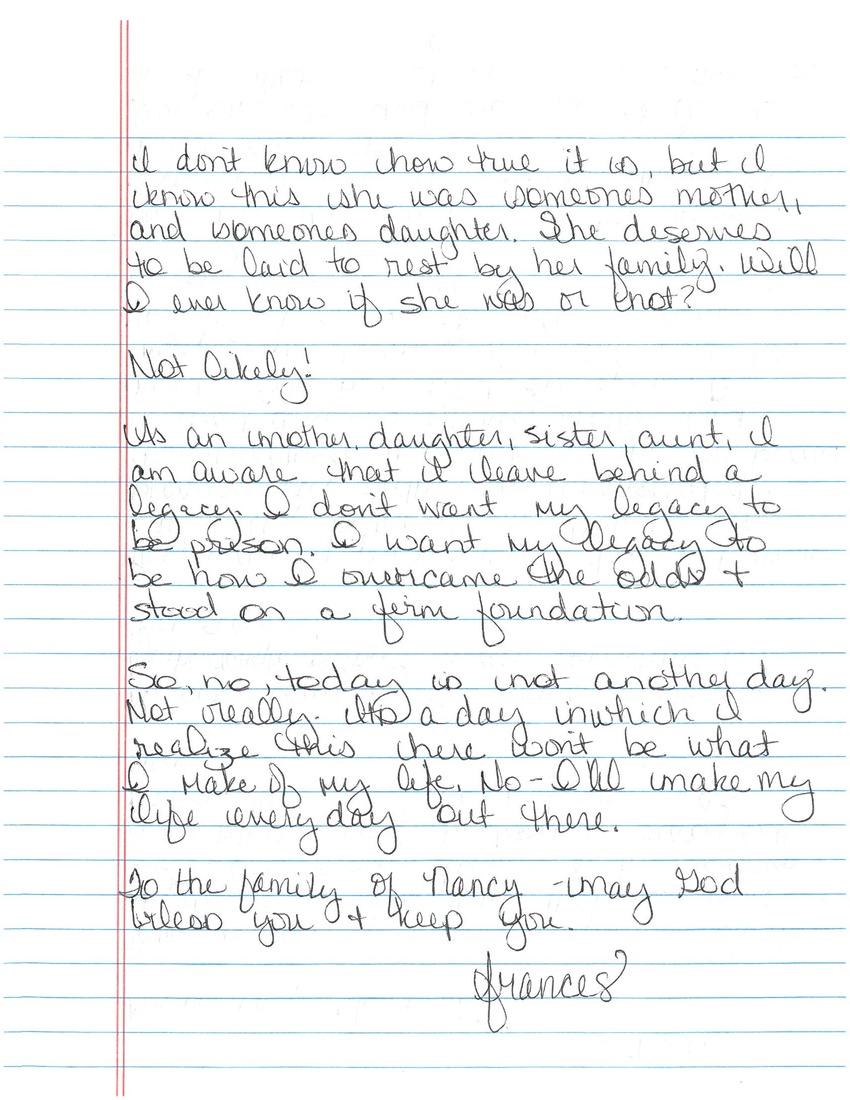 I don't know how true it is, but I
know this she was someones mother,
and someones daughter. She deserves
to be laid to rest by her family. Will
I ever know if she was or knot?
Not likely!
As an mother, daughter, sister, aunt, I
am aware that I leave behind a
legacy. I don't want my legacy to
be prison. I want my legacy to
be how I overcame the odds +
stood on a firm foundation.
So, no, today is not another day.
Not really. Its a day inwhich I
realize this here won't be what
I make of my life. No - I'll make my
life everyday out there.
To the family of Nancy - may God
bless you + keep you.
Frances